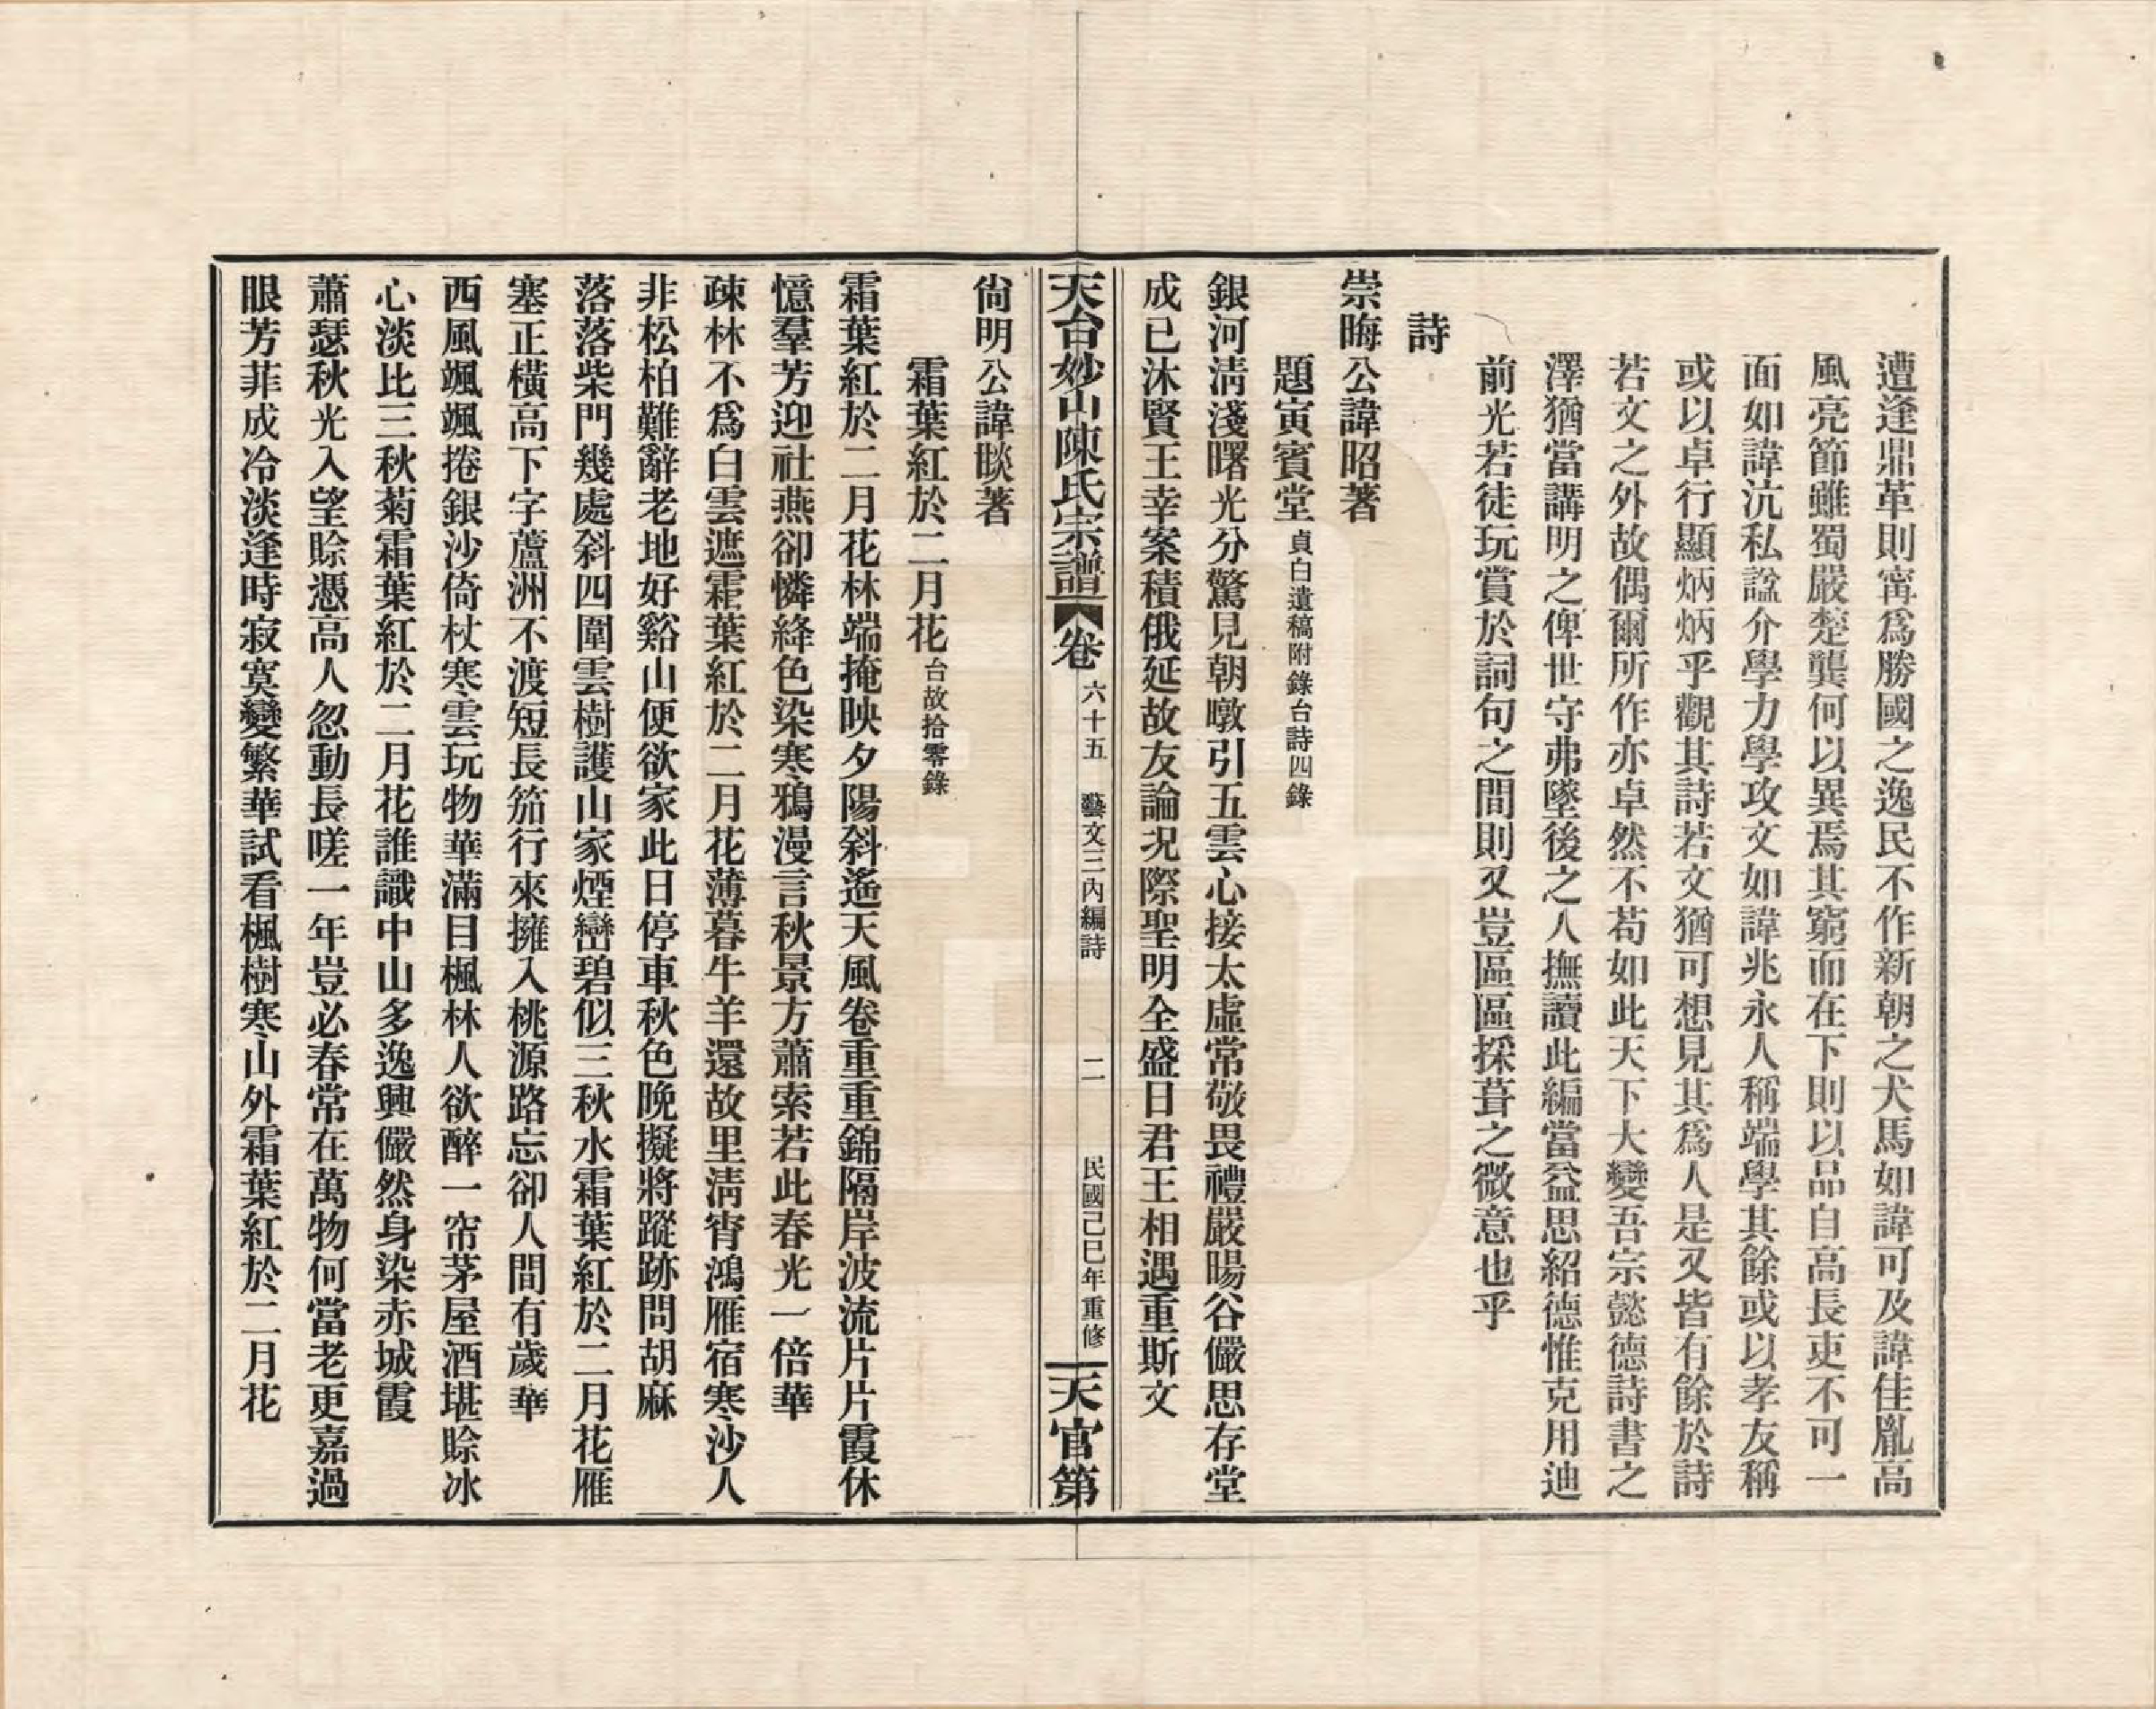 遭逢鼎革則甯爲勝國之逸民不作新朝之犬馬如諱可及諱佳胤高
風亮節雖蜀嚴楚龔何以異焉其窮而在下則以品自高長吏不可一
面如諱沆私諡介學力學攻文如諱兆永人稱端學其餘或以孝友稱
或以卓行顯炳炳乎觀其詩若文猶可想見其爲人是又皆有餘於詩
若文之外故偶爾所作亦卓然不苟如此天下大變吾宗懿德詩書之
澤猶當講明之俾世守弗墜後之人撫讀此編當益思紹德惟克用迪
前光若徒玩賞於詞句之間則又豈區區採葺之微意也乎
詩
崇晦公諱昭著
題寅賓堂 貞白遺稿附錄台詩四錄
銀河淸淺曙光分驚見朝暾引五雲心接太虛常敬畏禮嚴暘谷儼思存堂
成已沐賢王幸案積俄延故友論况際聖明全盛日君王相遇重斯文
天台妙山陳氏宗譜 卷 六十五 藝文三內編詩 二 民國己巳年重修 天官第
尙明公諱睒著
霜葉紅於二月花 台故拾零錄
霜葉紅於二月花林端掩映夕陽斜遙天風卷重重錦隔岸波流片片霞休
憶羣芳迎社燕卻憐絳色染寒鴉漫言秋景方蕭索若此春光一倍華
疎林不爲白雲遮霜葉紅於二月花薄暮牛羊還故里淸宵鴻雁宿寒沙人
非松柏難辭老地好谿山便欲家此日停車秋色晚擬將蹤跡問胡麻
落落柴門幾處斜四圍雲樹護山家煙巒碧似三秋水霜葉紅於二月花雁
塞正橫高下字蘆洲不渡短長笳行來擁入桃源路忘卻人間有歲華
西風颯颯捲銀沙倚杖寒雲玩物華滿目楓林人欲醉一帘茅屋酒堪賒冰
心淡比三秋菊霜葉紅於二月花誰識中山多逸興儼然身染赤城霞
蕭瑟秋光入望賒憑高人忽動長嗟一年豈必春常在萬物何當老更嘉過
眼芳菲成冷淡逢時寂寞變繁華試看楓樹寒山外霜葉紅於二月花